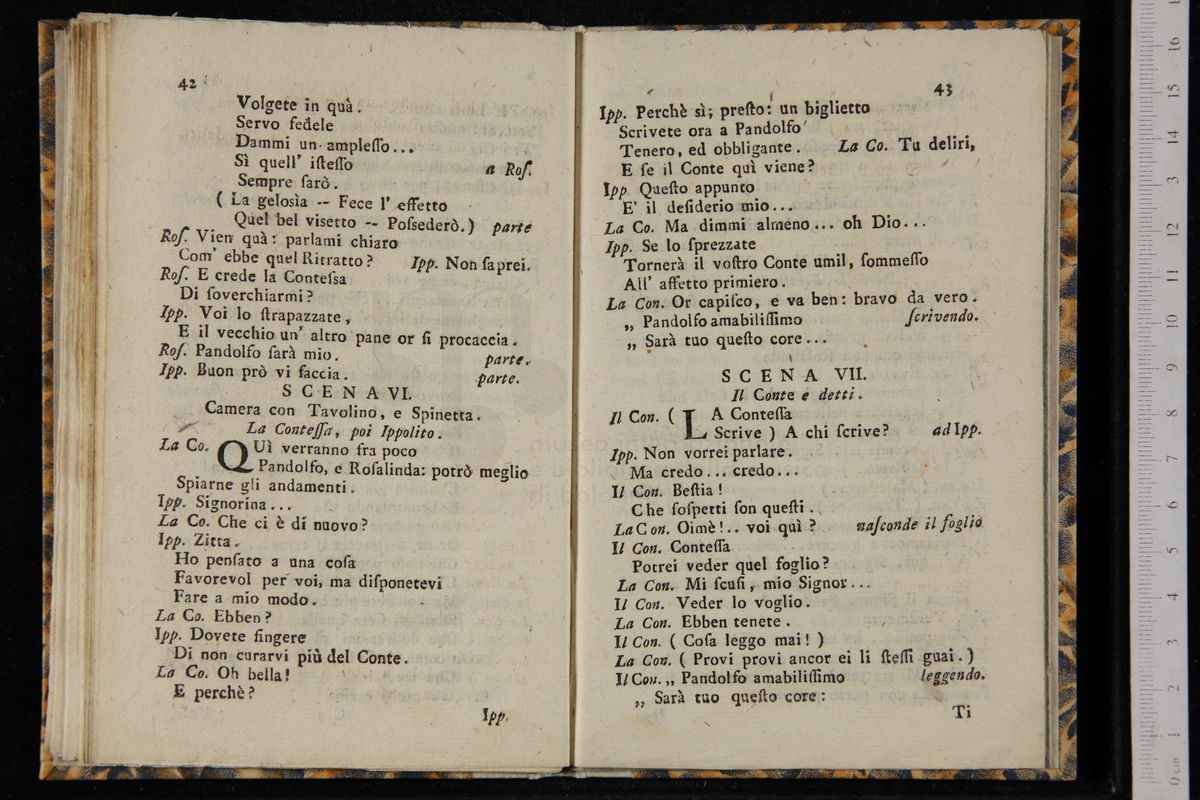 42
Volgete in quà.
Servo fedele
Dammi un ampleſſo...
Sì quell' iſteſſo a Roſ.
Sempre ſarò.
( La gelosìa -- Fece l' effetto
Quel bel visetto -- Poſsederò. ) parte
Roſ. Vien quà: parlami chiaro
Com' ebbe quel Ritratto? Ipp. Non ſaprei.
Roſ. E crede la Conteſsa
Di ſoverchiarmi?
Ipp. Voi lo ſtrapazzate,
E il vecchio un' altro pane or ſi procaccia.
Roſ. Pandolfo ſarà mio. parte.
Ipp. Buon prò vi faccia. parte.
SCENA VI.
Camera con Tavolino, e Spinetta.
La Conteſſa, poi Ippolito.
La Co. QUì verranno fra poco
Pandolfo, e Roſalinda: potrò meglio
Spiarne gli andamenti.
Ipp. Signorina...
La Co. Che ci è di nuovo?
Ipp. Zitta.
Ho penſato a una coſa
Favorevol per voi, ma diſponetevi
Fare a mio modo.
La Co. Ebben?
Ipp. Dovete fingere
Di non curarvi più del Conte.
La Co. Oh bella!
E perchè?
Ipp.
43
Ipp. Perchè sì; preſto: un biglietto
Scrivete ora a Pandolfo
Tenero, ed obbligante. La Co. Tu deliri,
E ſe il Conte quì viene?
Ipp. Queſto appunto
E' il deſiderio mio...
La Co. Ma dimmi almeno... oh Dio...
Ipp. Se lo ſprezzate
Tornerà il voſtro Conte umil, ſommeſſo
All' affetto primiero.
La Con. Or capiſco, e va ben: bravo da vero.
„ Pandolfo amabiliſſimo ſcrivendo.
„ Sarà tuo queſto core...
SCENA VII.
Il Conte e detti.
Il Con. ( LA Conteſſa
Scrive ) A chi ſcrive? ad Ipp.
Ipp. Non vorrei parlare.
Ma credo... credo...
Il Con. Beſtia!
Che ſoſpetti ſon queſti.
La Con. Oimè!.. voi quì? naſconde il foglio
Il Con. Conteſſa
Potrei veder quel foglio?
La Con. Mi ſcuſi, mio Signor...
Il Con. Veder lo voglio.
La Con. Ebben tenete.
Il Con. ( Coſa leggo mai! )
La Con. ( Provi provi ancor ei li ſteſſi guai. )
Il Con. „ Pandolfo amabiliſſimo leggendo.
„ Sarà tuo queſto core:
Ti